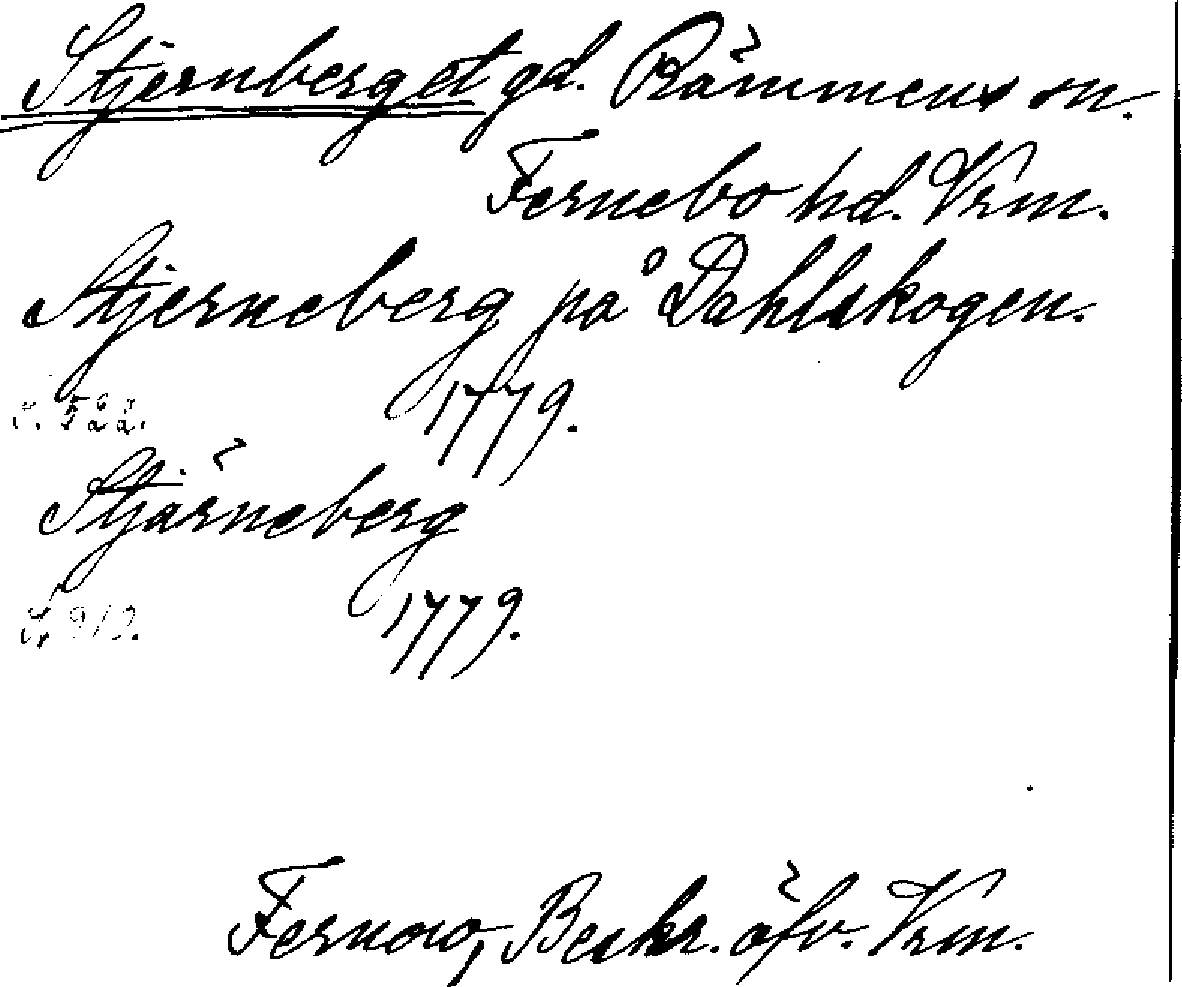 Stjernberget gd. Rämmens sn.
Fernebo hd. Vrm.
Stjerneberg på Dahlskogen.
s. 522. 1779.
Stjärneberg
S. 919. 1779.
Fernow, Beskr. öfv. Vrm.